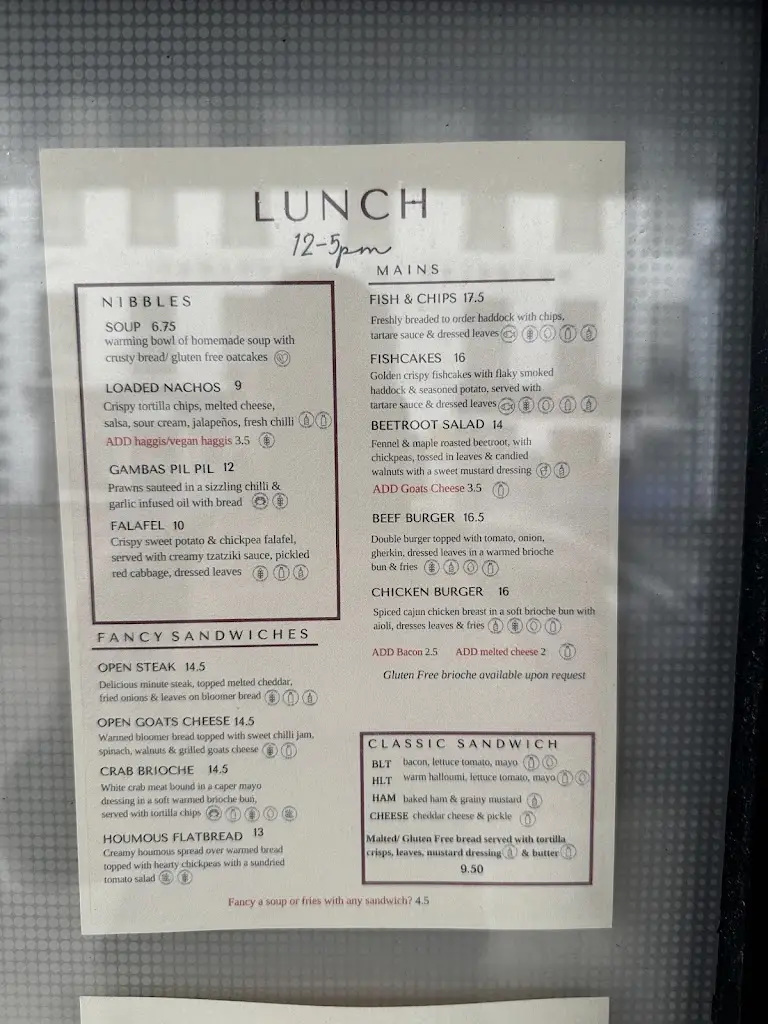 LUNCH
12-5pm
NIBBLES
SOUP 6.75
warming bowl of homemade soup with
crusty bread/ gluten free oatcakes
LOADED NACHOS 9
Crispy tortilla chips, melted cheese,
salsa, sour cream, jalapeños, fresh chilli
ADD haggis/vegan haggis 3.5
GAMBAS PIL PIL 12
Prawns sauteed in a sizzling chilli &
garlic infused oil with bread
FALAFEL 10
Crispy sweet potato & chickpea falafel,
served with creamy tzatziki sauce, pickled
red cabbage, dressed leaves
FANCY SANDWICHES
OPEN STEAK 14.5
Delicious minute steak, topped melted cheddar,
fried onions & leaves on bloomer bread
OPEN GOATS CHEESE 14.5
Warmed bloomer bread topped with sweet chilli jam,
spinach, walnuts & grilled goats cheese
CRAB BRIOCHE 14.5
White crab meat bound in a caper mayo
dressing in a soft warmed brioche bun,
served with tortilla chips
HOUMOUS FLATBREAD 13
Creamy houmous spread over warmed bread
topped with hearty chickpeas with a sundried
tomato salad
MAINS
FISH & CHIPS 17.5
Freshly breaded to order haddock with chips,
tartare sauce & dressed leaves
FISHCAKES 16
Golden crispy fishcakes with flaky smoked
haddock & seasoned potato, served with
tartare sauce & dressed leaves
BEETROOT SALAD 14
Fennel & maple roasted beetroot, with
chickpeas, tossed in leaves & candied
walnuts with a sweet mustard dressing
ADD Goats Cheese 3.5
BEEF BURGER 16.5
Double burger topped with tomato, onion,
gherkin, dressed leaves in a warmed brioche
bun & fries
CHICKEN BURGER 16
Spiced cajun chicken breast in a soft brioche bun with
aioli, dresses leaves & fries
ADD Bacon 2.5 ADD melted cheese 2
Gluten Free brioche available upon request
CLASSIC SANDWICH
BLT bacon, lettuce tomato, mayo
HLT warm halloumi, lettuce tomato, mayo
HAM baked ham & grainy mustard
CHEESE cheddar cheese & pickle
Malted/ Gluten Free bread served with tortilla
crisps, leaves, mustard dressing & butter
9.50
Fancy a soup or fries with any sandwich? 4.5